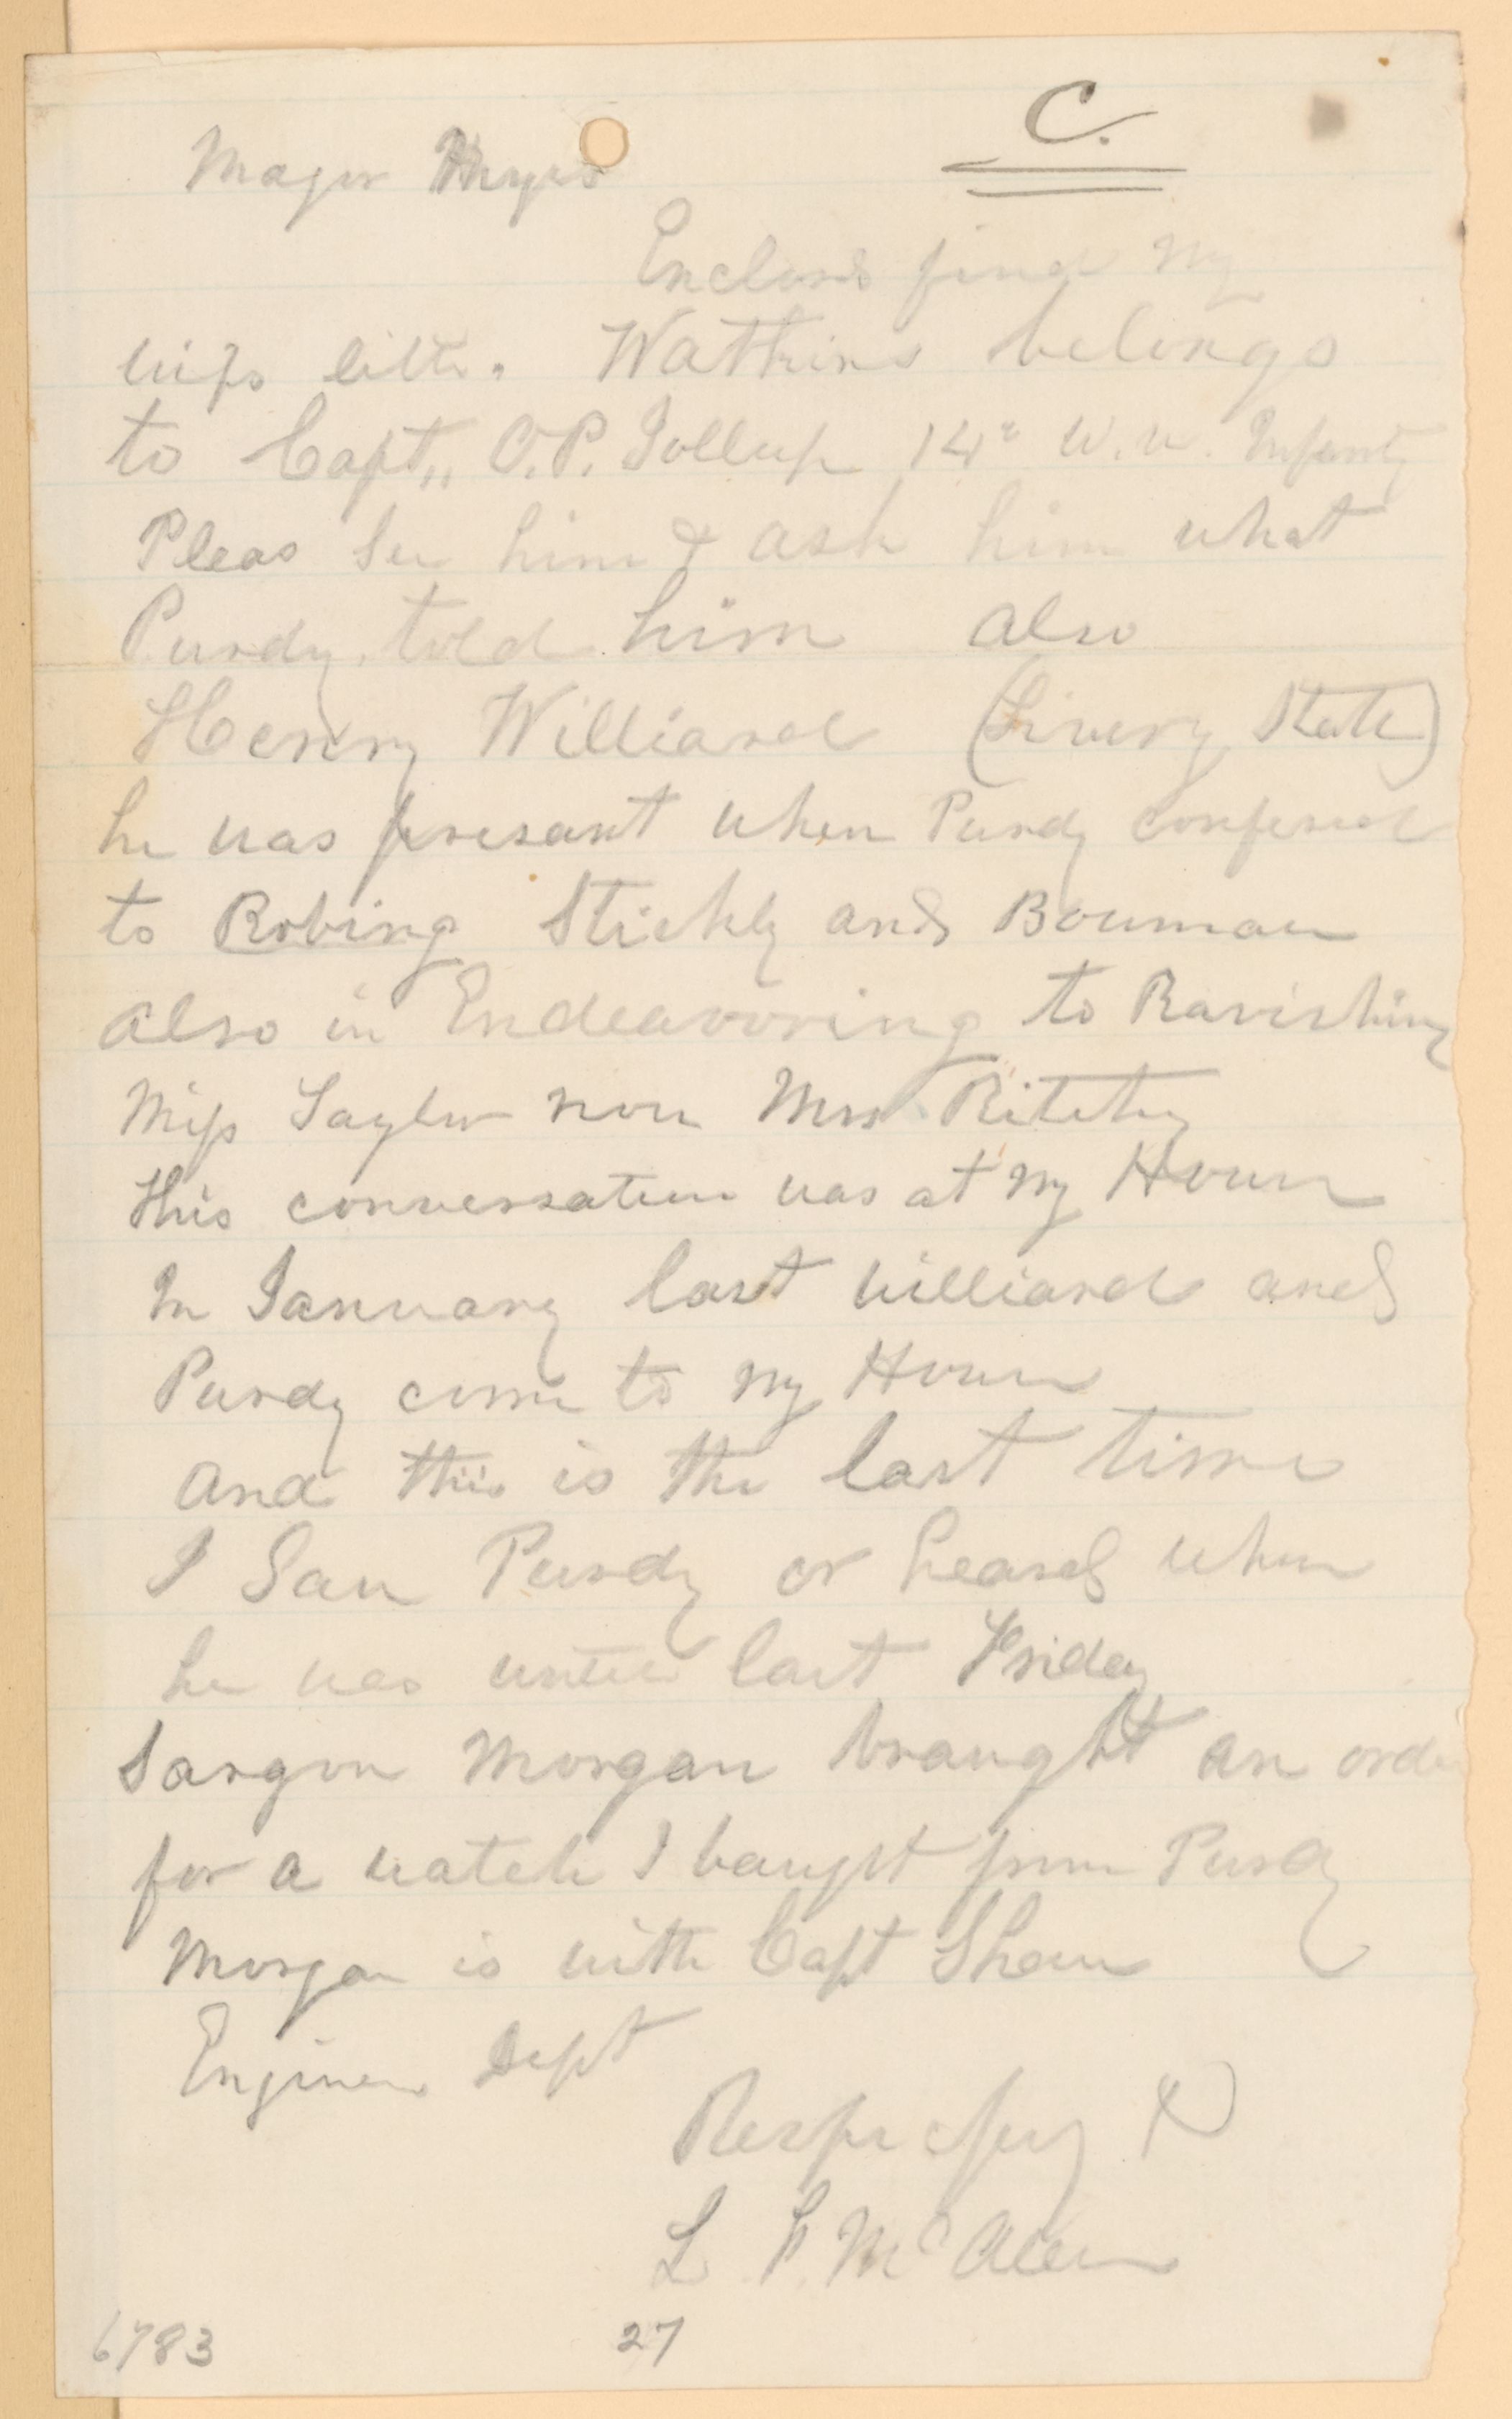 C.
Major Myers
Enclosed find my
wifs lettr. Watkins belongs
to Capt,, O.P. Jollup 14" W.V. Infanty
Pleas See him & ask him what
Purdy told him also
Henry Williard (Livery Stable)
he was presant when Purdy confesed
to Robing Stickly and Bowman
also in Endeavoring to Ravishing
Miss Taylor now Mrs Ritchy
this conversation was at my House
In January last williard and
Purdy come to my House
and this is the last time
I Saw Purdy or heard whare
he was untill last Friday
Sargon Morgan braught an order
for a watch I baught from Purdy
Morgan is with Capt Shaw
Engineer Dept
Respectfuly
L F. McAleer
6783 27